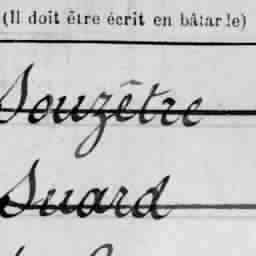 (Il doit être écrit en bâtarde)
Souzêtre
Suard